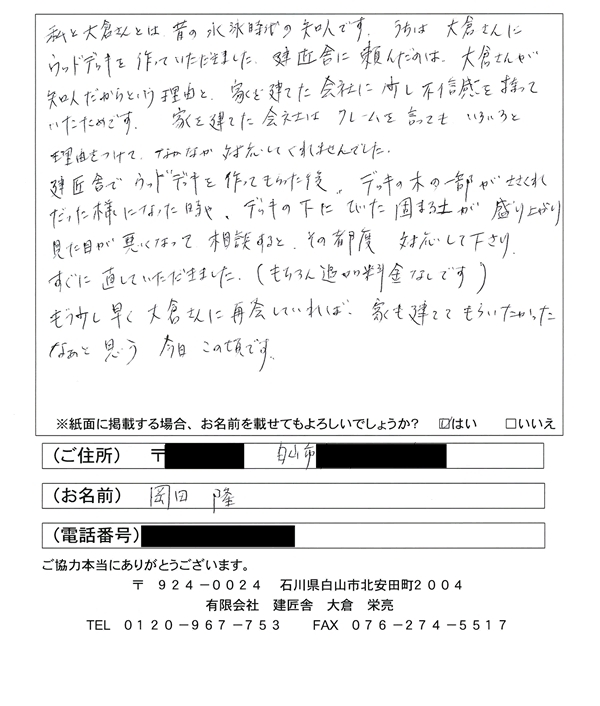 私と大倉さんとは、昔の水泳時代の知人です。 うちは 大倉さんに
ウッドデッキを 作っていただきました。 建匠舎に 頼んだのは、 大倉さんが
知人だからという 理由と、 家を 建てた 会社に 少し 不信感を 持って
いたためです。 家を 建てた 会社は クレームを 言っても いろいろと
理由をつけて、 なかなか 対応してくれませんでした。
建匠舎で ウッドデッキを 作ってもらった後、 デッキの木の一部が ささくれ
だった様になった時や、 デッキの下に ひいた 固まる土が 盛り上がり
見た目が 悪くなって 相談すると、 その都度 対応して下さり、
すぐに 直していただきました。 (もちろん 追加料金なしです)
もう少し 早く 大倉さんに 再会していれば、 家も 建てて もらいたかった
なぁと 思う 今日 この頃です。
※紙面に掲載する場合、お名前を載せてもよろしいでしょうか? ☑はい □いいえ
(ご住所) 〒 白山市
(お名前) 岡田 隆
(電話番号)
ご協力本当にありがとうございます。
〒 924-0024 石川県白山市北安田町2004
有限会社 建匠舎 大倉 栄亮
TEL 0120-967-753 FAX 076-274-5517